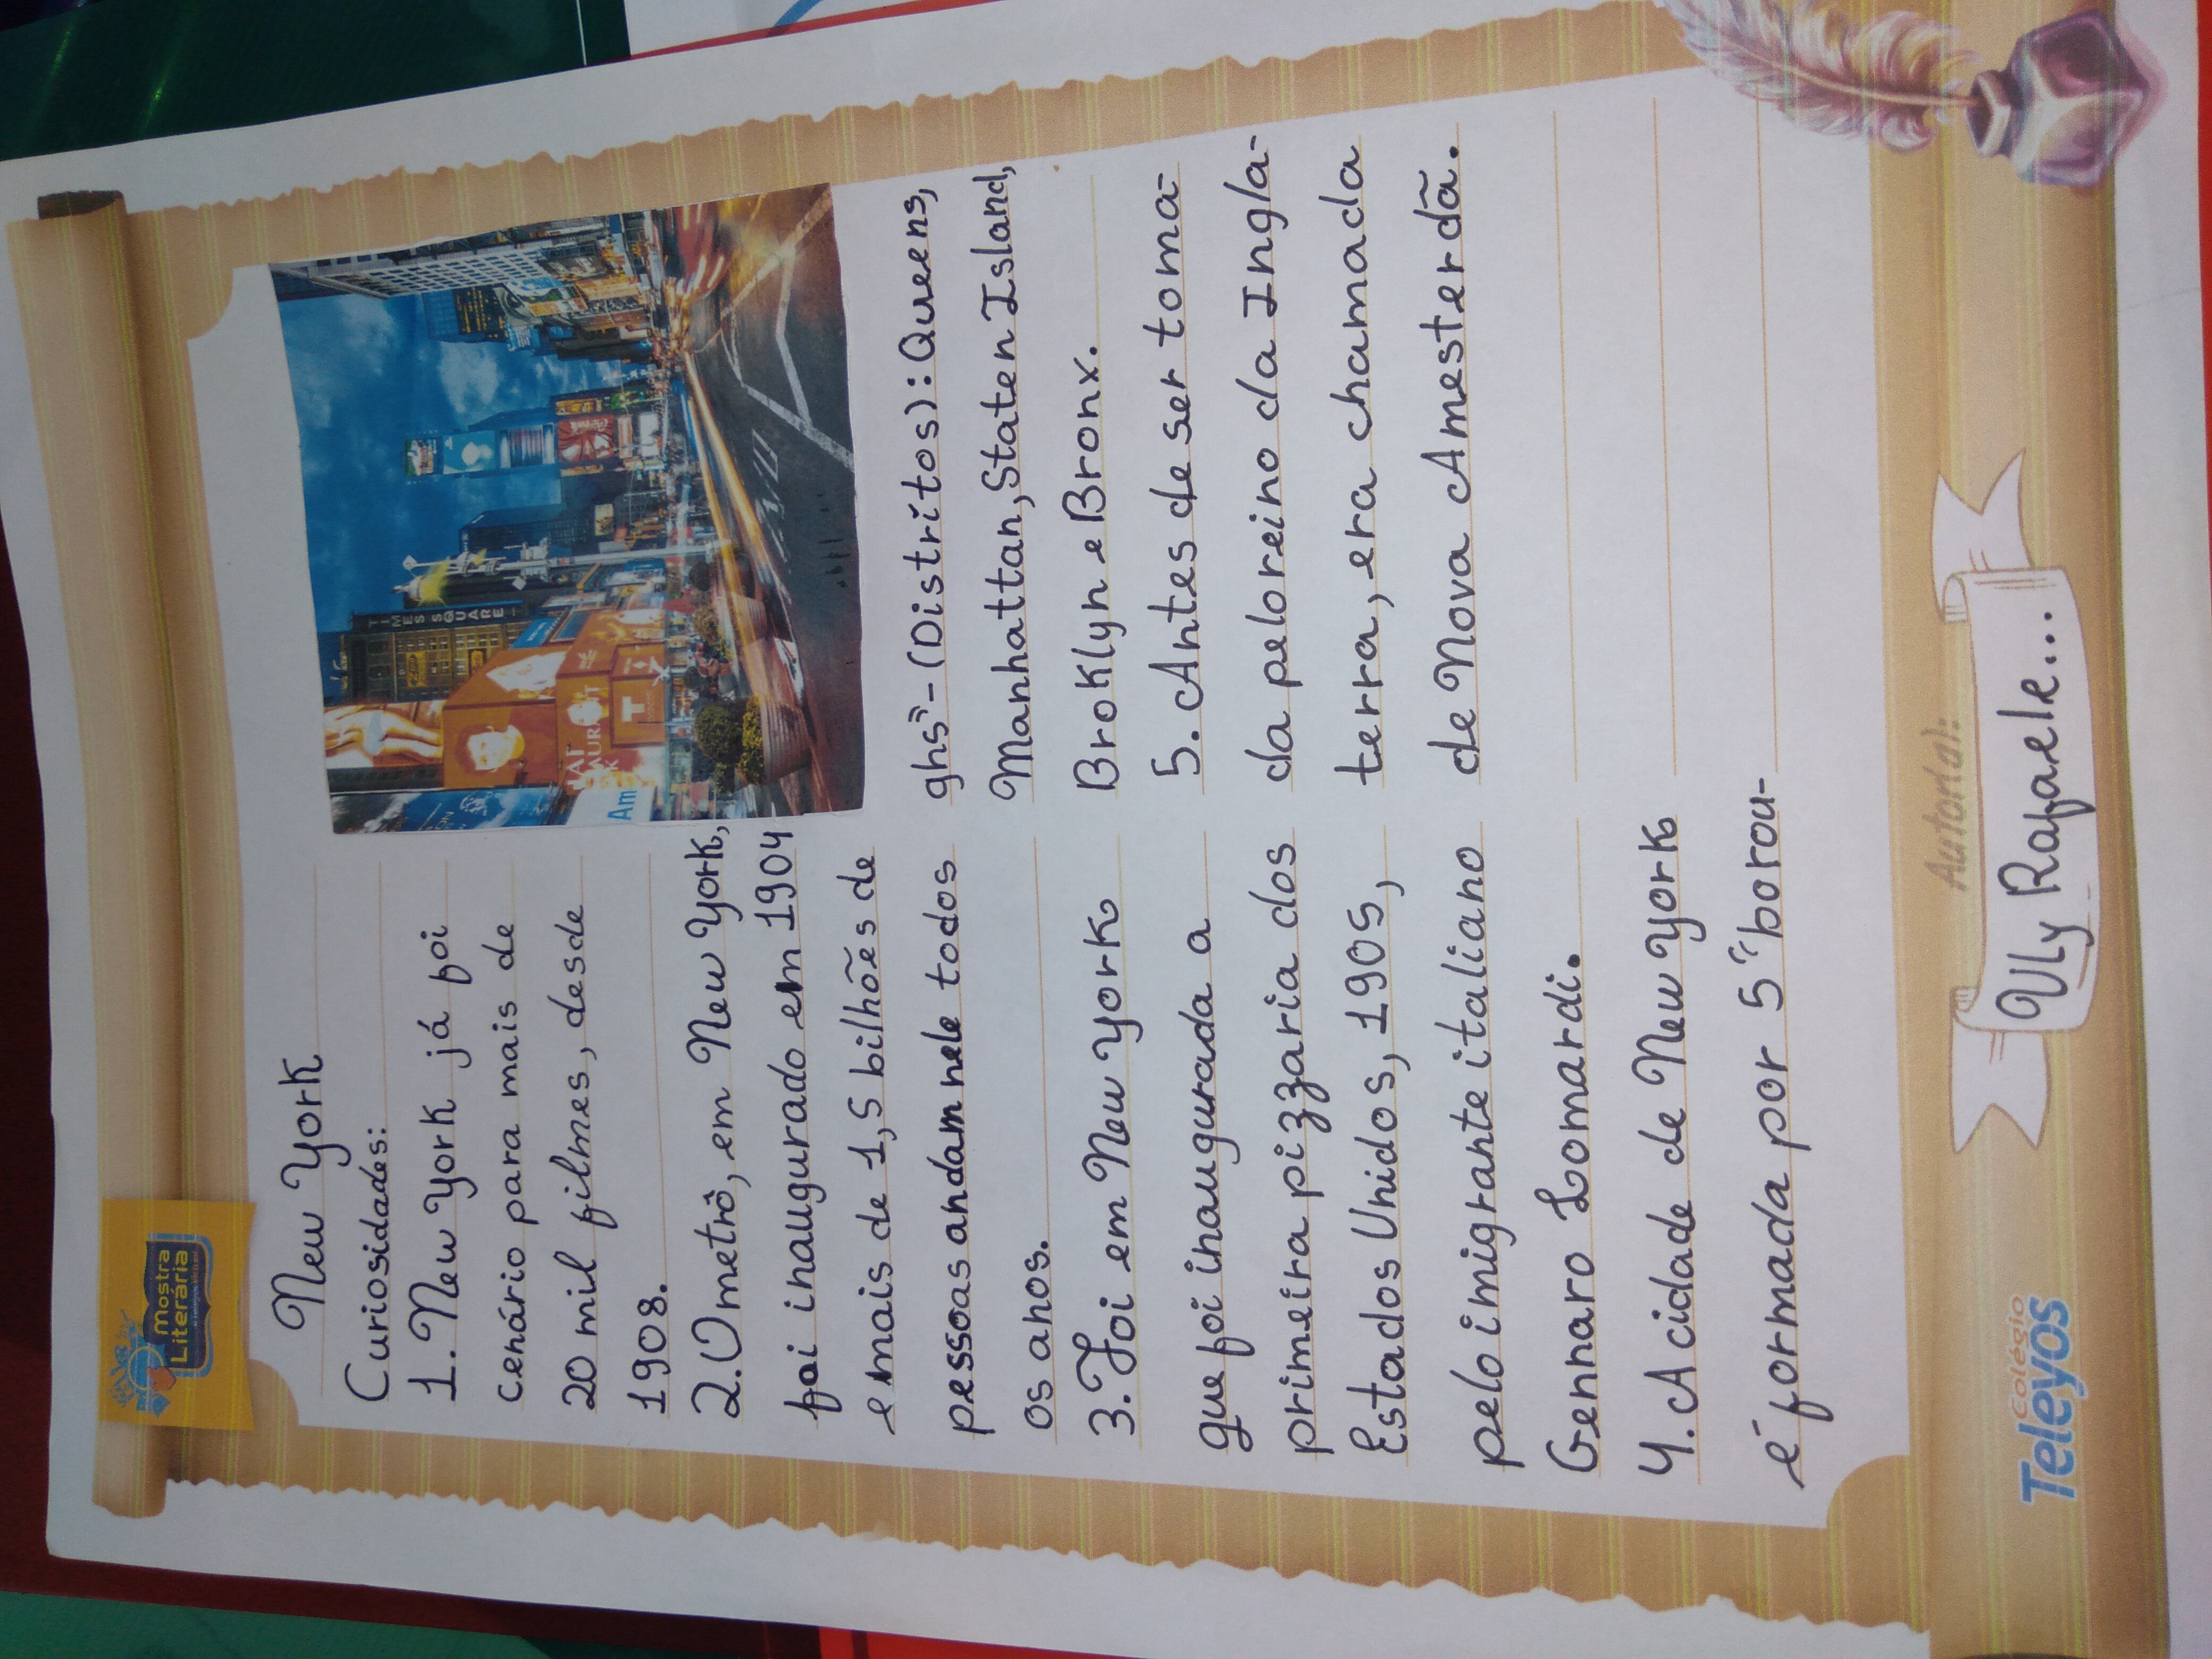 Mostra
Literária
New York
Curiosidades:
1. New York já foi
cenário para mais de
20 mil filmes, desde
1908.
2. O metrô, em New York,
foi inaugurado em 1904
e mais de 1,5 bilhões de
pessoas andam nele todos
os anos.
3. Foi em New York
que foi inaugurada a
primeira pizzaria dos
Estados Unidos, 1905,
pelo imigrante italiano
Gennaro Lomardi.
4. A cidade de New York
é formada por 5 "borou-
TIMES SQUARE
Am
ghs" - (Distritos): Queens,
Manhattan, Staten Island,
Broklyn e Bronx.
5. Antes de ser toma-
da pelo reino da Ingla-
terra, era chamada
de Nova Amesterdã.
Colégio
Teleyos
Autor(a):
Uly Rafaele...